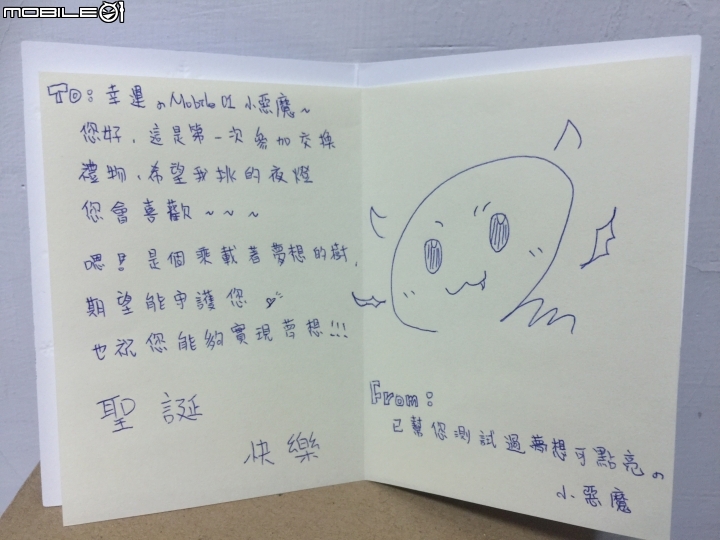 MOBILE01
To：幸運のMobile01小惡魔~
您好，這是第一次參加交換
禮物，希望我挑的夜燈
您會喜歡~~~
嗯！是個乘載著夢想的樹，
期望能守護您
也祝您能夠實現夢想!!!
聖誕
快樂
From：
已幫您測試過夢想可點亮の
小惡魔